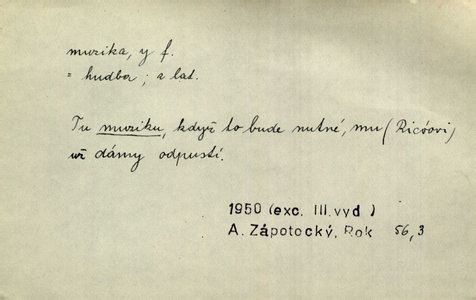 muzika, y f.
= hudba; z lat.
Tu muziku, když to bude nutné, mu (Ricóovi)
už dámy odpustí.
1950 (exc. III.vyd.)
A. Zápotocký, Rok 56,3